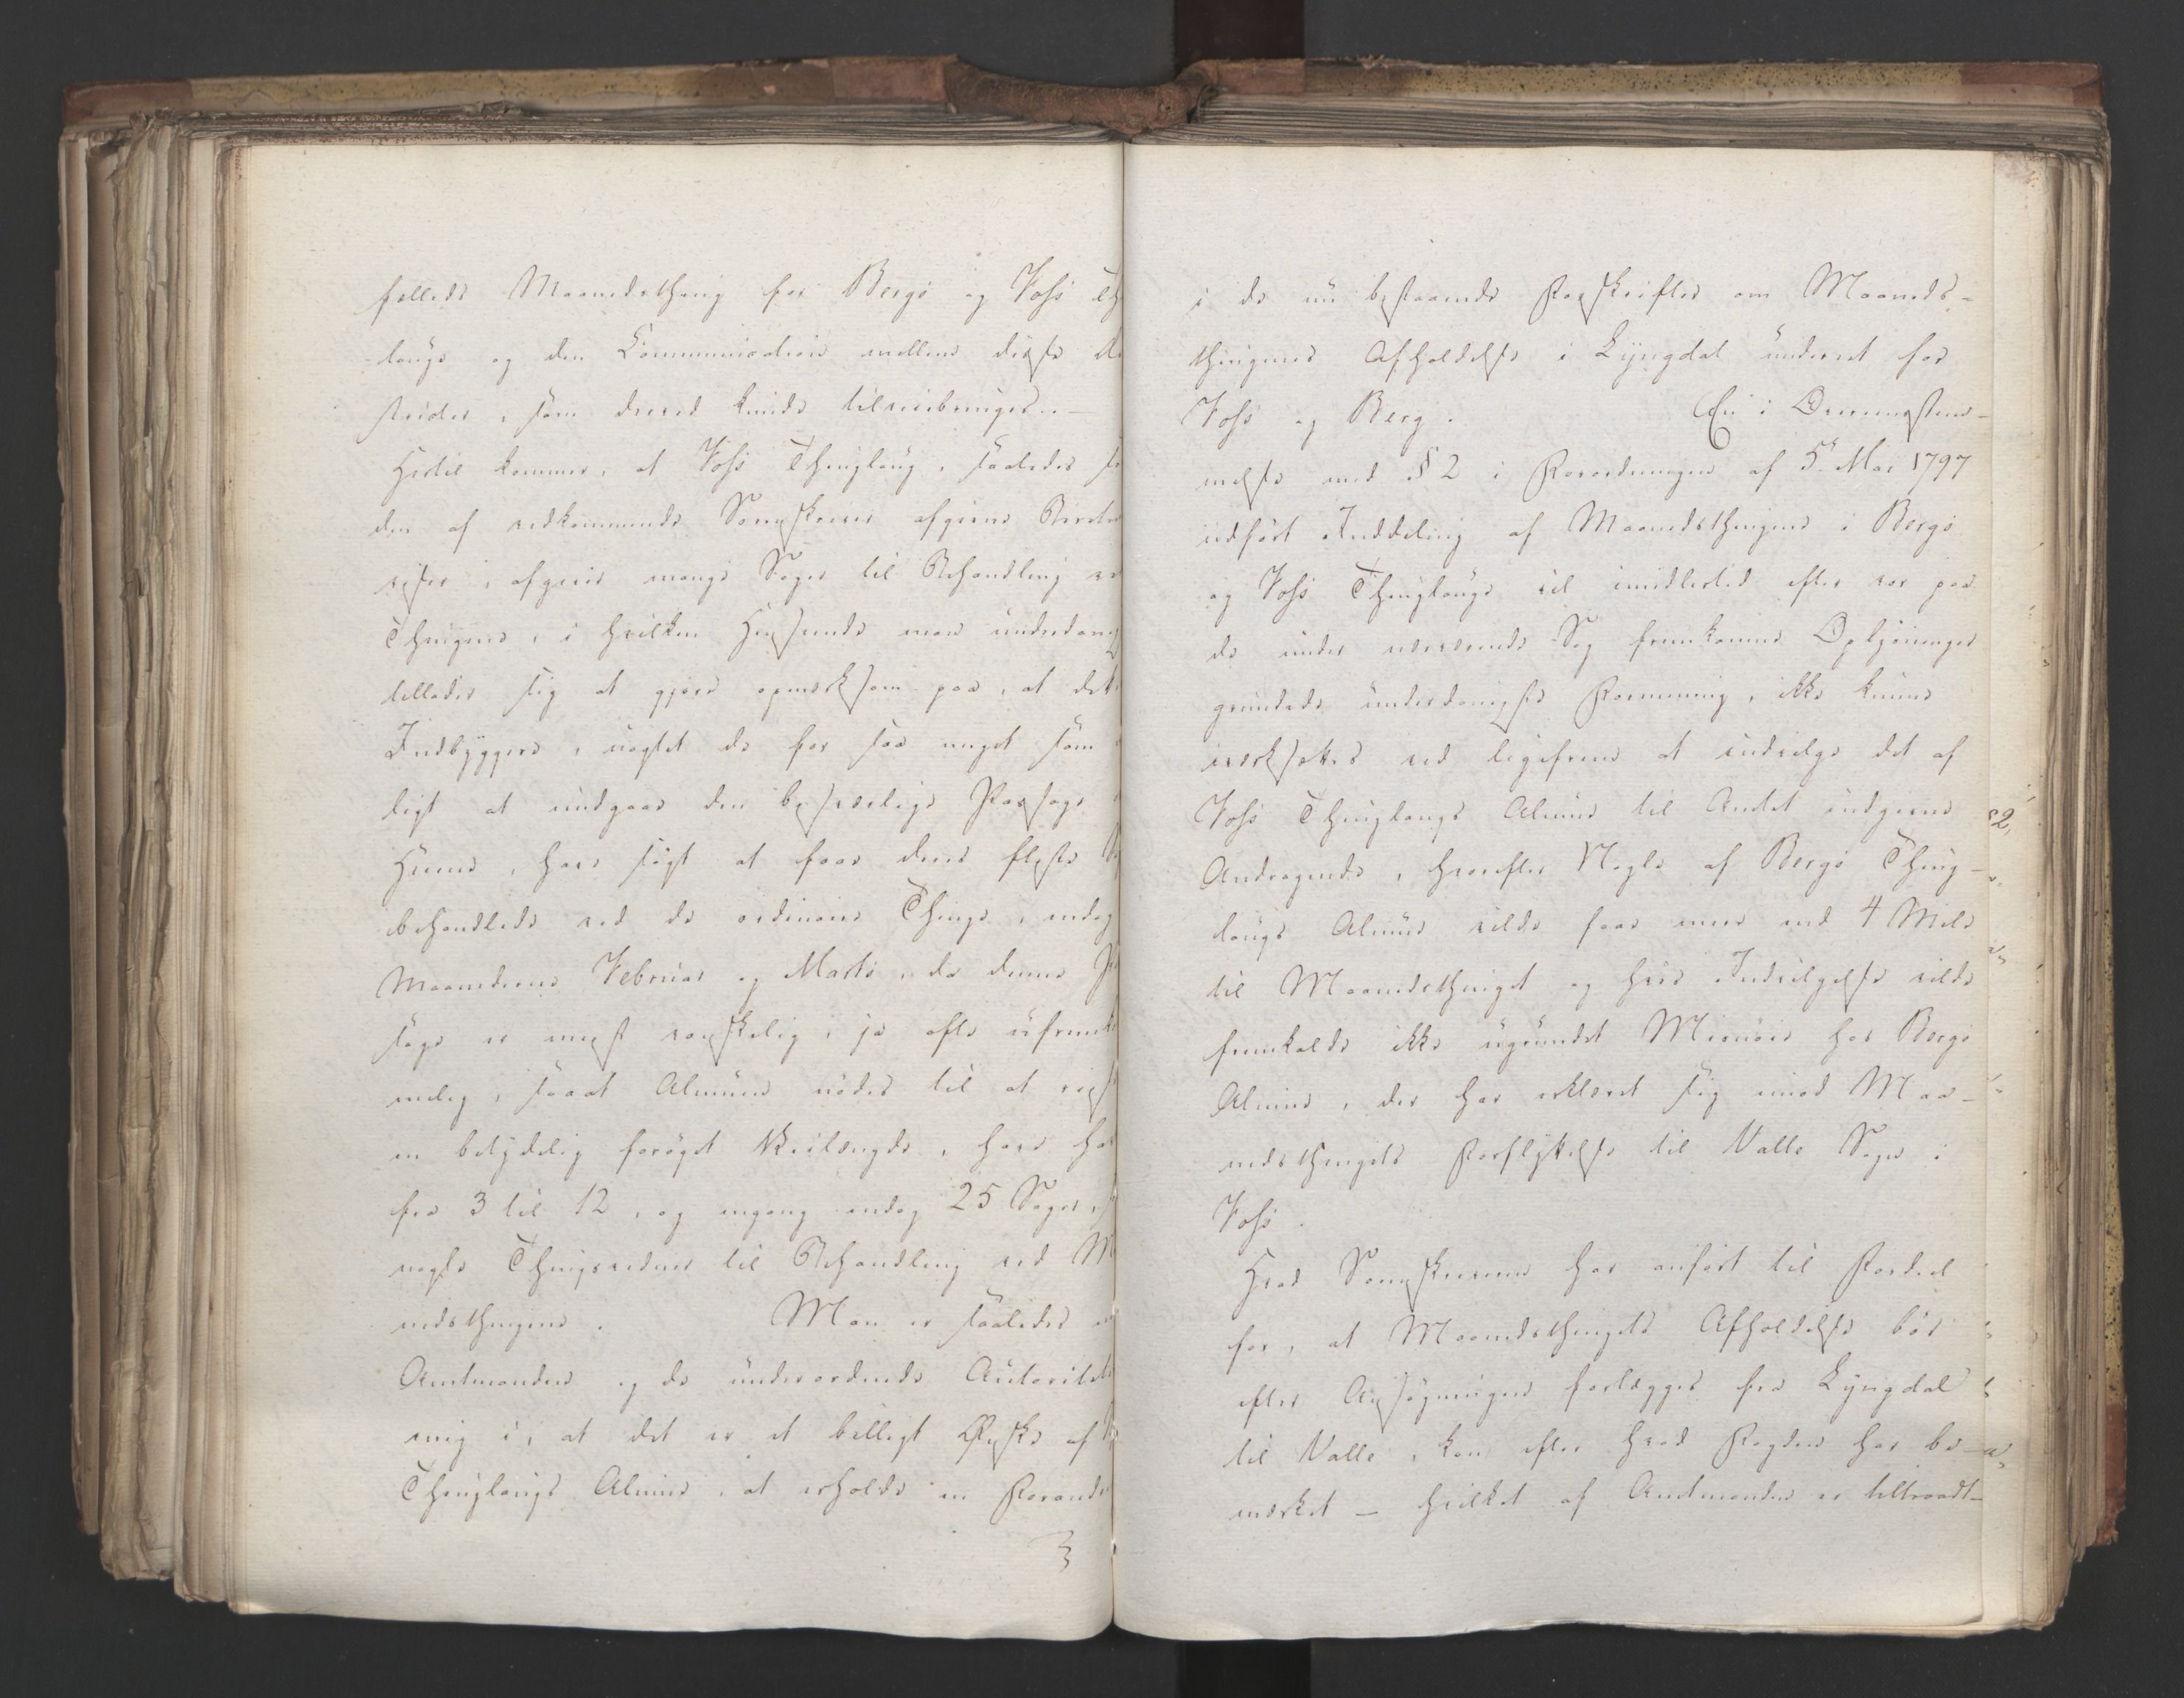 fælleds Maanedsthing for Bergs og Foss Th
laugs og den Communication mellem disse Di
strikter, som derved kunde tilveiebringes. —
Hertil kommer, at Foss Thinglaug, saaledes so
den af vedkommende Sorenskriver afgivne
viser, afgiver mange Sager til Behandling ve
Thingene, i hvilken Henseende man underdanig
tillader sig at gjøre opmærksom paa, at dets
Indbyggere, uagtet de for saa meget som
ligt at undgaae den besværlige Reise
Hiem, have søgt at faae deres fleste S
behandlede ved de ordinaire Thinge, endog
Maanederne Februar og Marts, da denne
er mest vanskelig, ja ofte ufremk
melig, saaat Almuen nødes til at reise
en betydelig forøget Veilængde, have ha
fra 3 til 12, og engang endog 25 Sager,
nogle Thingsvidner til Behandling ved M
nedsthingene. Man er saaledes
Amtmanden og de underordnede Autoritete
enig i, at det er et billigt Ønske af
Thinglaugs Almue, at erholde en Forandr
i de nu bestaaende Forskrifter om Maaneds-
thingenes Afholdelse i Lyngdal underet for
Foss og Berg. En i Overensstem-
melse med § 2 i Forordningen af 5te Mai 1797
udført Inddeling af Maanedsthingene i Bergs
og Foss Thinglauge vil imidlertid efter vor paa
de under nærværende Sag fremkomne Oplysninger
grundede underdanigste Formening, ikke kunne
iværksættes ved ligefrem at indvilge det af
Foss Thinglaugs Almue til Andet indgivne
Andragende, hvorefter Nogle af Bergs Thing-
laugs Almue vilde faae mere end 4 Mile
til Maanedsthinget og hvis Indvilgelse vilde
fremkalde ikke ugrundet Misnøie hos Bergs
Almue, der har erklæret sig imod Maa-
nedsthingets Forflyttelse til Valle Sogn i
Foss.
Hvad Sorenskriveren har anført til Fordeel
for, at Maanedsthingets Afholdelse bør
efter Ansøgningen forlægges fra Lyngdal
til Valle, kan efter hvad Fogden har be-
mærket — hvilket af Amtmanden er tiltraadt —